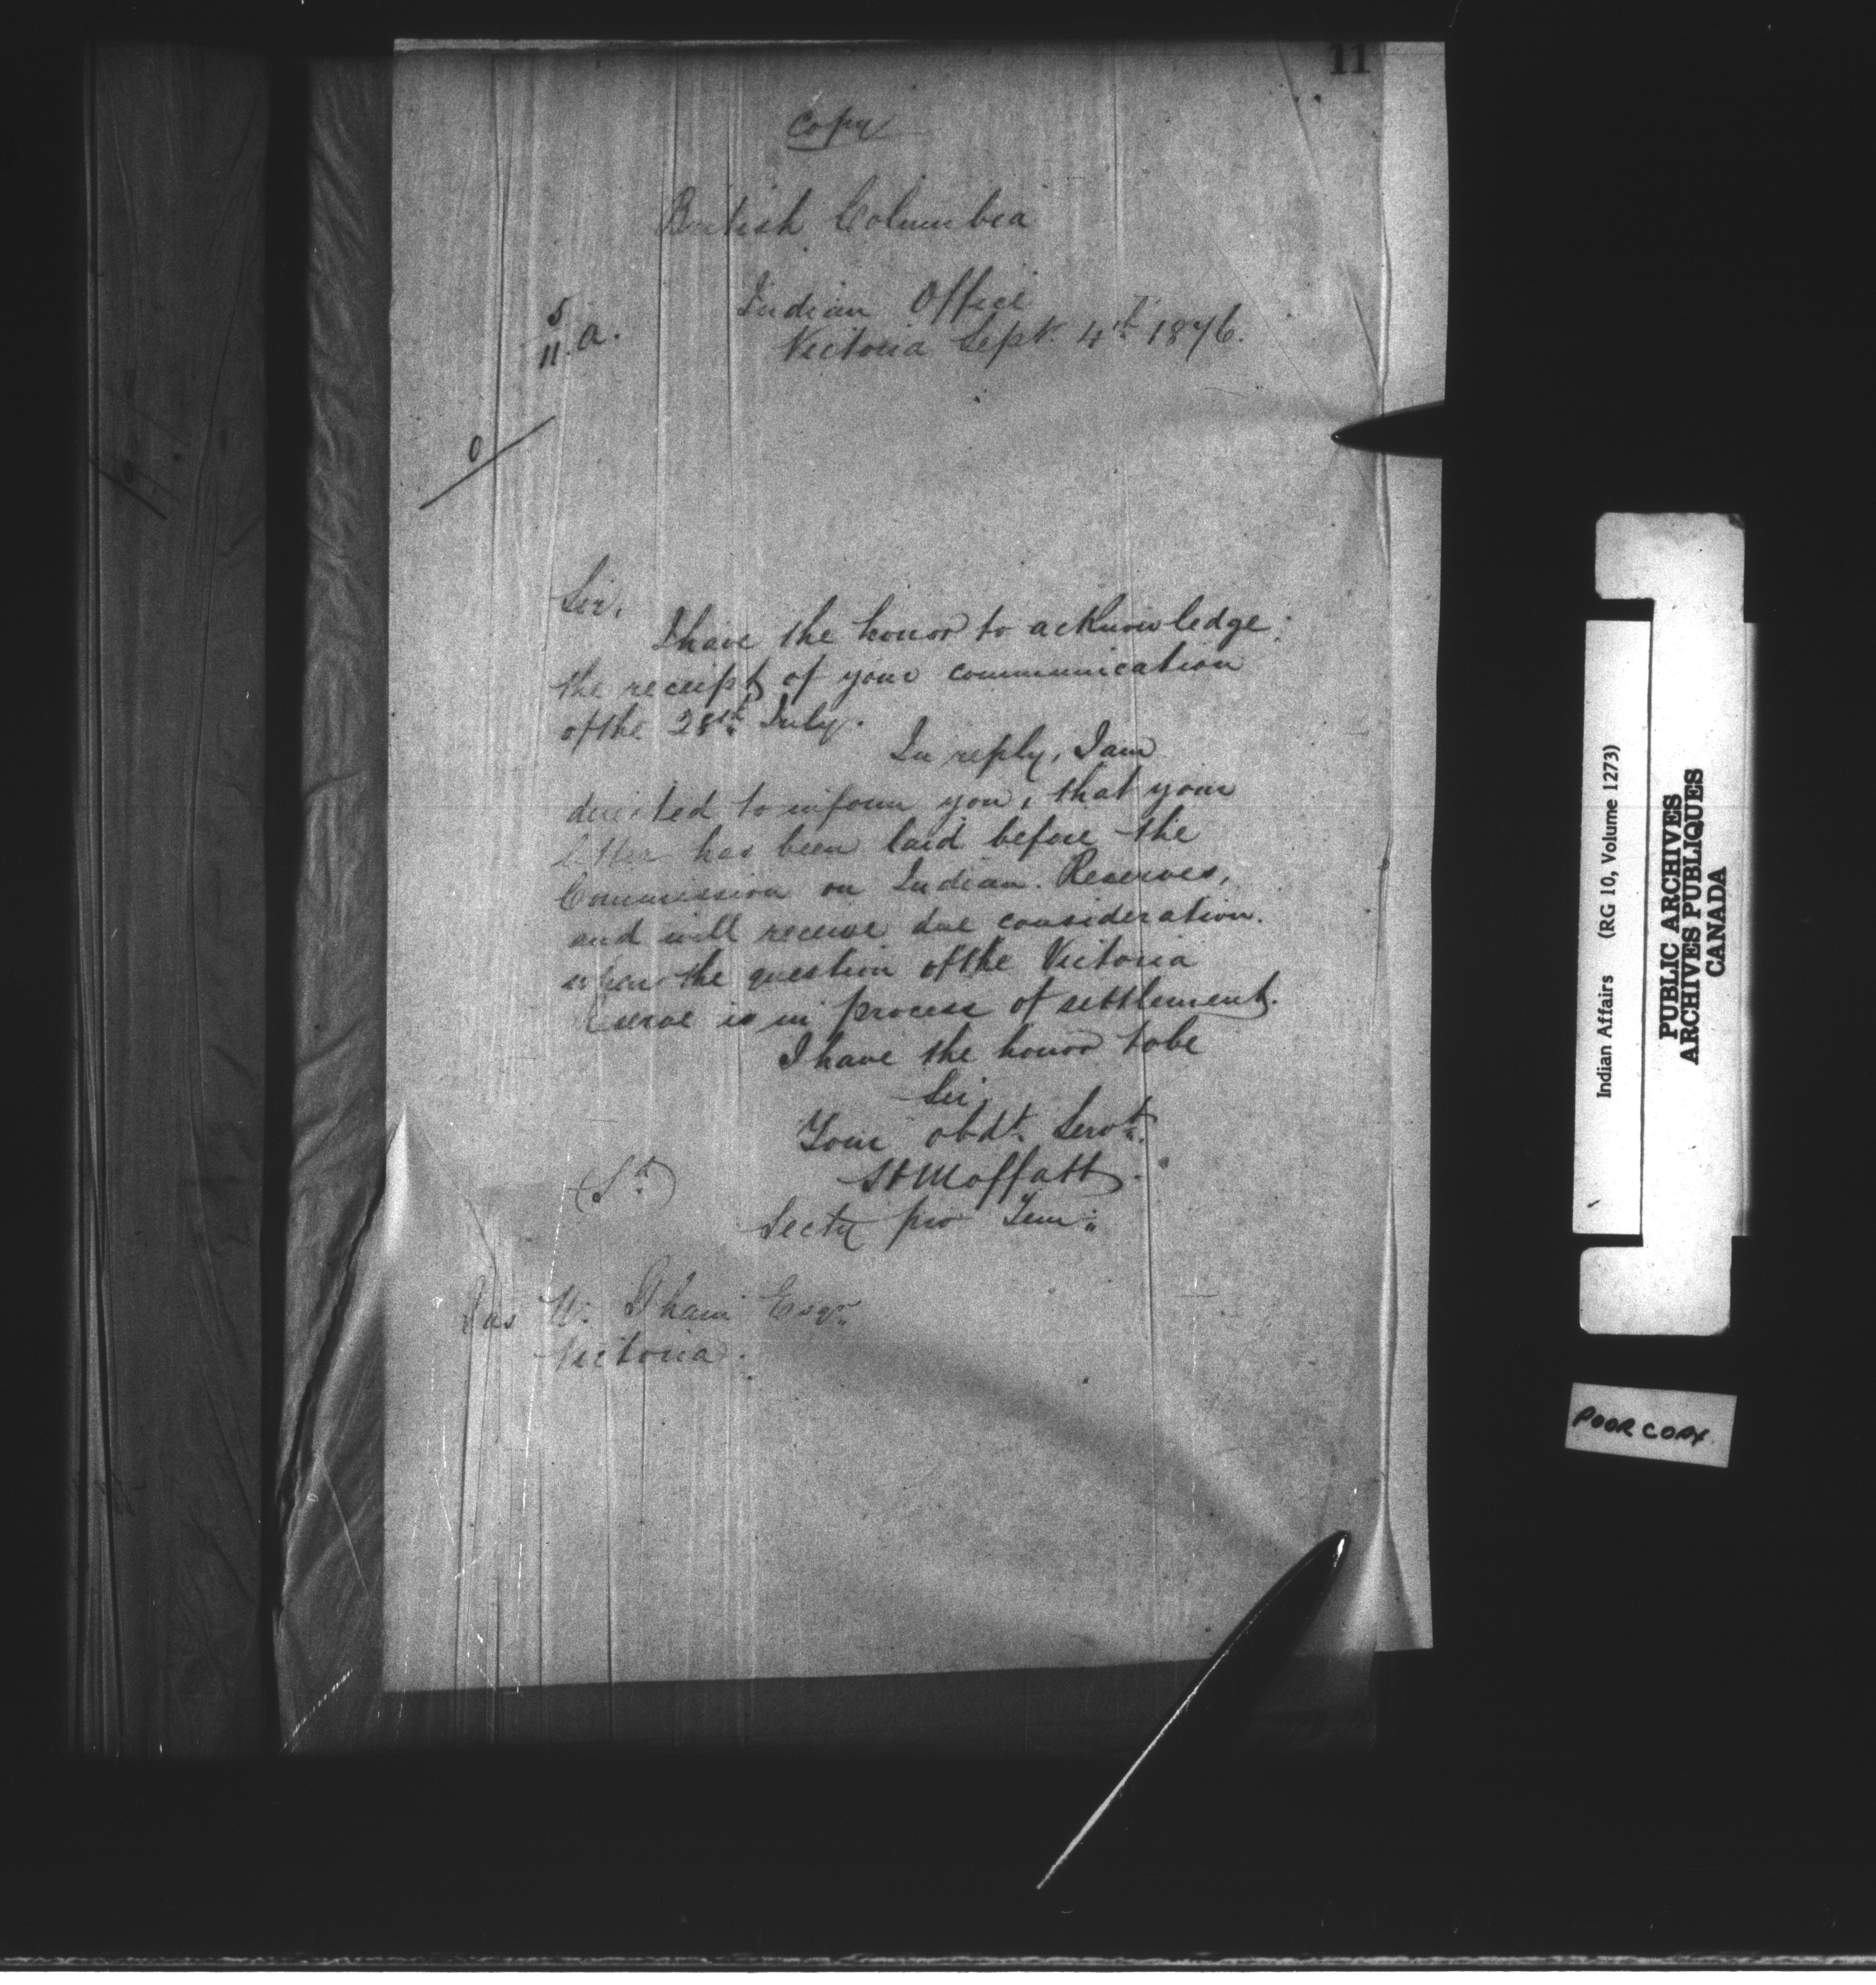 11
Copy
British Columbia
Indian Office
5
11.a.
Victoria Sept. 4th 1876.
0
Sir,
I have the honor to acknowledge
the receipt of your communication
of the 28th July.
In reply, I am
directed to inform you, that your
letter has been laid before the
Commission on Indian Reserves,
and will receive due consideration.
when the question of the Victoria
Reserve is in process of settlement.
I have the honor to be
Sir
Your obdt. Servt.
Moffatt.
Secty pro Tem:
Jas W. Esqr.
Victoria.
Indian Affairs (RG 10, Volume 1273)
PUBLIC ARCHIVES
ARCHIVES PUBLIQUES
CANADA
POOR COPY